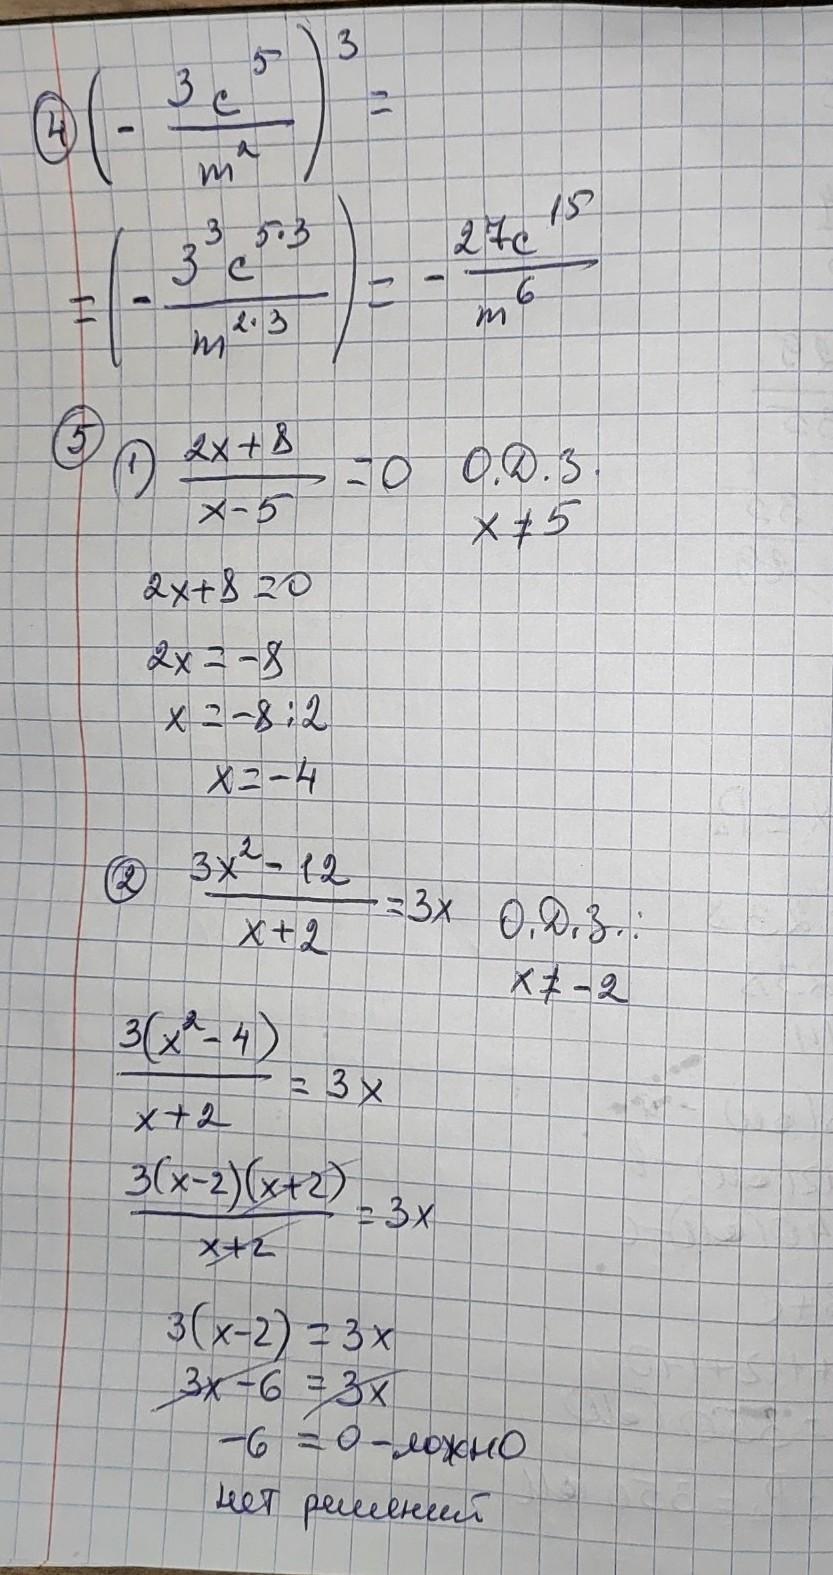 ④ (- 3c^5 / m^2)^3 =
= (- 3^3 c^5·3 / m^2·3) = - 27c^15 / m^6
⑤ 1) (2x+8) / (x-5) = 0 О.Д.З.
x ≠ 5
2x+8=0
2x = -8
x = -8:2
x = -4
② (3x^2 - 12) / (x+2) = 3x О.Д.З.:
x ≠ -2
3(x^2 - 4) / (x+2) = 3x
3(x-2)(x+2) / (x+2) = 3x
3(x-2) = 3x
3x - 6 = 3x
-6 = 0 - ложно
нет решений